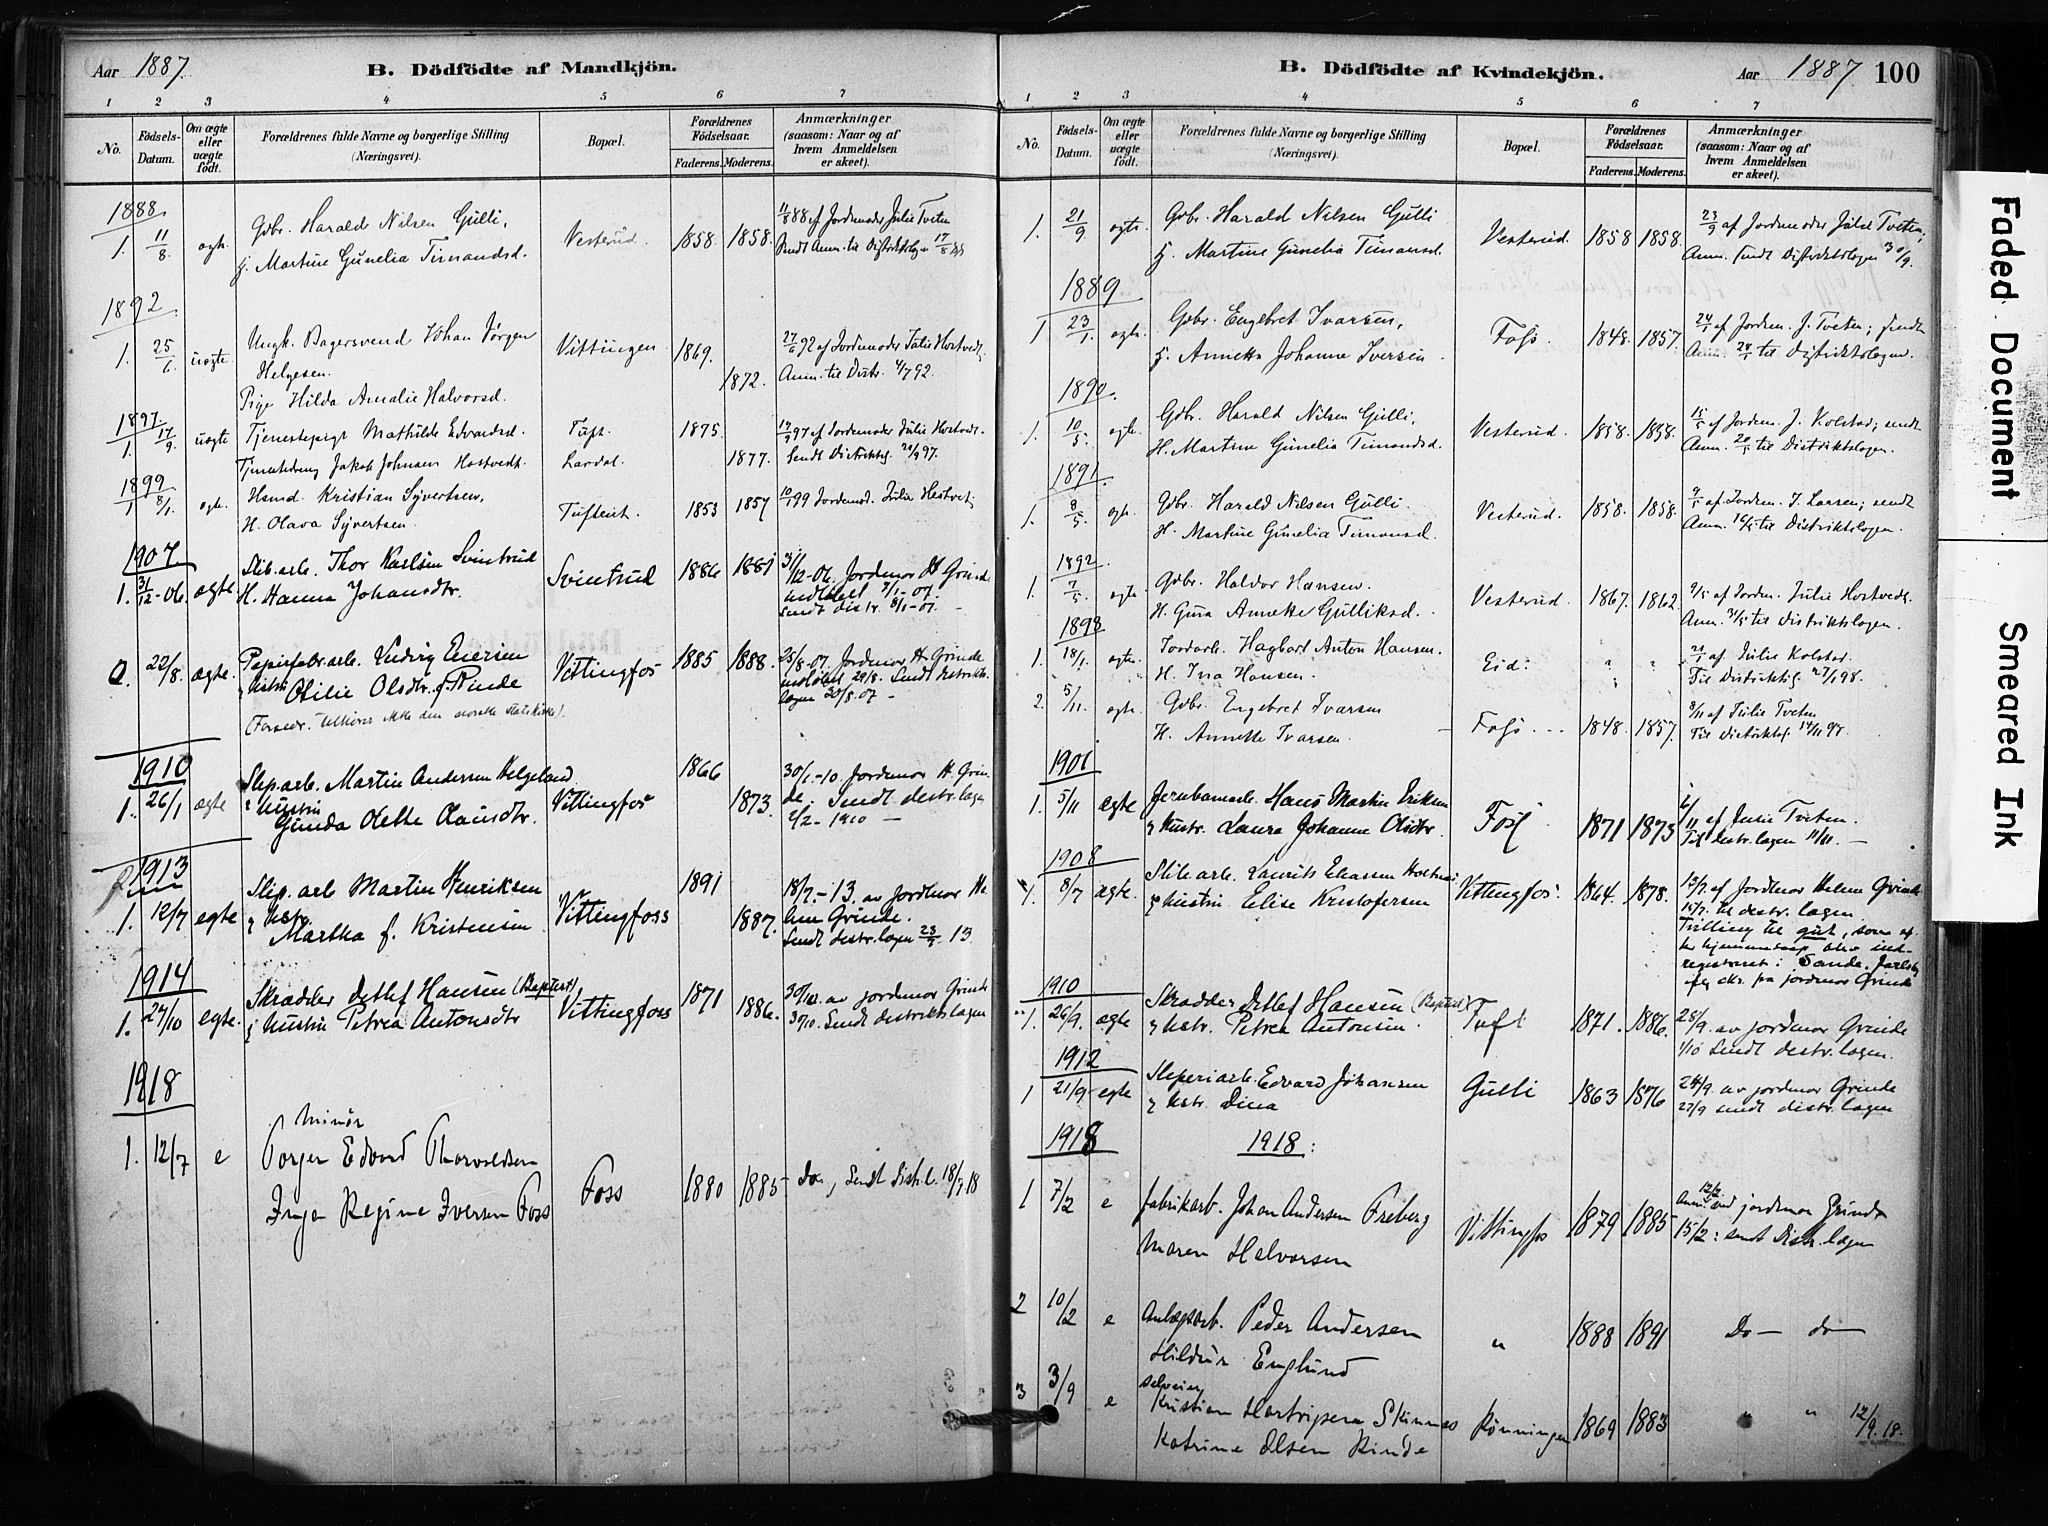 Aar 1887.
B. Dödfödte af Mandkjön.
1 2 3 4 5 6 7
No.
Födsels-Datum.
Om ægte eller uægte födt.
Forældrenes fulde Navne og borgerlige Stilling
(Næringsvei).
Bopæl.
Forældrenes Fødselsaar.
Faderens. Moderens.
Anmærkninger
(saasom: Naar og af
hvem Anmeldelsen
er skeet).
1888
1. 11/8. ægte Gdbr. Harald Nilsen Gulli, Vesterud. 1858. 1858. 11/8 88 af Jordemoder Julie Tveten
H. Martine Gunelia Timandsd. Sendt Anm. til Distriktslægen 17/8 88
1892
1. 25/6 uægte Ungk. Bagersvend Johan Jørgen Vittingen 1869. 27/6 92 af Jordemoder Julie Hostvedt,
Helgesen. 1872. Anm. til Distr. 4/7 92.
Pige Hilda Amalie Halvorsd.
1897
1. 17/9. uægte Tjenestepige Mathilde Edvardsd. Tuft. 1875. 17/9 97 af Jordemoder Julie Hostvedt.
Jakob Johnsen Hostvedt. Lardal. 1877. Sendt Distriktslg. 20/9 97.
1899
1 8/1. ægte. Hsmd. Kristian Syvertsen, Tufteeit. 1853 1857 10/1 99 Jordemod. Julie Hostvet,
H. Olava Syvertsen.
1907.
1. 31/12-06. ægte Slib.arb. Thor Karlsen Svintrud Svintrud 1886 1881 31/12-06. Jordmor H Grinde
H. Hanna Johansdtr. indløbet 7/1-07.
Sendt distr. 8/1-07. -
22/8. ægte. Papirfabr.arb. Ludvig Eversen Vittingfos 1885 1888. 25/8-07. Jordmor H. Grinde
Hustru Olilie Olsdtr. f. Rinde indløbet 29/8. Sendt distrikts
lægen 30/8.07 -
(Foræedr. tilhører ikke den norske statskirke).
1910
1. 26/1 ægte Slip.arb. Martin Andersen Helgeland Vittingfos 1866 30/1.-10. Jordmor H. Grin-
& Hustru 1873. de. Sendt destr.lægen
Gunda Olette Clausdtr. 2/2-1910 -
1913
1. 12/7 egte Slip.arb Martin Henriksen Vittingfoss 1891 18/7.-13. av jordmor He
& Hstr. 1887. lene Grinde.
Martha f. Kristensen Sendt destr.lægen 23/7 13.
1914
1. 27/10 egte. Skrædder Detlef Hansen (Baptist) Vittingfoss 1871 1886. 30/10. av jordmor Grinde
& Hustru Petrea Antonsdtr 30/10. Sendt distriktslægen
1918
minør
1. 12/7 e Torger Edvard Thorvaldsen Foss 1880 1885 Do, Sendt Distr.l. 18/7 18
Inga Regine Iversen Foss
B. Dödfödte af Kvindekjön.
Aar 1887 100
1 2 3 4 5 6 7
No.
Födsels-Datum.
Om ægte eller uægte födt.
Forældrenes fulde Navne og borgerlige Stilling
(Næringsvei).
Bopæl.
Forældrenes Födselsaar.
Faderens. Moderens.
Anmærkninger
(saasom: Naar og af
hvem Anmeldelsen
er skeet).
1. 21/9. ægte Gdbr. Harald Nilsen Gulli Vesterud. 1858 1858. 23/9 af Jordemoder Julie Tveten;
H. Martine Gunelia Timansd. Anm. sendt Distriktslægen 30/9.
1889
1 23/1. ægte. Gdbr. Engebret Ivarsen, Fosz. 1848. 1857. 24/1 af Jordem. J. Tveten; sendt
H. Annette Johanne Iversen. Anm. 28/1 til Distriktslægen.
1890.
1. 10/5. ægte Gdbr. Harald Nilsen Gulli, Vesterud. 1858. 1858. 15/5 af Jordem. J. Kolstad; sendt
H. Martine Gunelia Timandsd. Anm. 20/5 til Distriktslægen.
1891
1. 8/5. ægte. Gdbr. Harald Nilsen Gulli. Vesterud. 1858. 1858. 9/5 af Jordem. J. Larsen; sendt
H. Martine Gunelia Timansd. Anm. 16/5 til Distriktslægen.
1892
1. 7/5. ægte Gdbr. Haldor Hansen. Vesterud. 1867. 1862. 9/5 af Jordem. Julie Hostvedt.
H. Gura Annette Gulliksd. Anm. 31/5 til Distriktslægen.
1898
1. 18/1. ægte. Jordarb. Hagbart Anton Hansen. Eid. " " 21/1 af Julie Kolstad.
H. Ina Hansen. Til Distriktslg. 27/1 98.
2. 5/11. ægte Gdbr. Engebret Ivarsen Fosz. 1848. 1857. 8/11 af Julie Tveten
H. Annette Ivarsen. Til Distriktslg. 14/11 98.
1901
1. 5/11 ægte Jernbanearb. Hans Martin Eriksen Fosz. 1871 1873 6/11 af Julie Tveten.
& Hustr. Laura Johanne Olsdtr. Til destr.lægen 11/11. -
1908
1. 8/7 ægte Slib.arb. Laurits Eliasen Vittingfos. 1864. 1878. 13/7. af Jordmor Helene Grinde
& Hustru Elise Kristofersen 15/7. til destr.lægen.
Tvilling til gut, som ef-
ter hjemmedaap blev ind-
registreret i Sande, Jarlsberg
efter skr. fra jordmor Grinde
1910
1. 26/9. ægte Skrædder Detlef Hansen (Baptist) Tuft 1871. 1886. 28/9. av jordmor Grinde
& Hstr. Petrea Antonsen. 1/10 Sendt destr.lægen.
1912
1 21/9 egte Sliperiarb. Edvard Johansen Gulli 1863 1876 24/9. av jordmor Grinde
& Hstr. Dina 27/9 sendt distr.lægen
1918 1918:
1 7/2 e fabrikarb. Johan Andersen Freberg Vittingfos 1879 1885 Anm. 12/2 ved jordmor Grinde
Maren Halvorsen 15/2: sendt Distr.lægen
2 10/2 e Anlægsarb. Peder Andersen " 1888 1891 Do - do -
Hildur Englund
3 3/9 e selveier
Kristian Skinnes Rønningen 1869 1883 " " 12/9.18.
Katrine Olsen Rinde
Faded Document
Smeared Ink